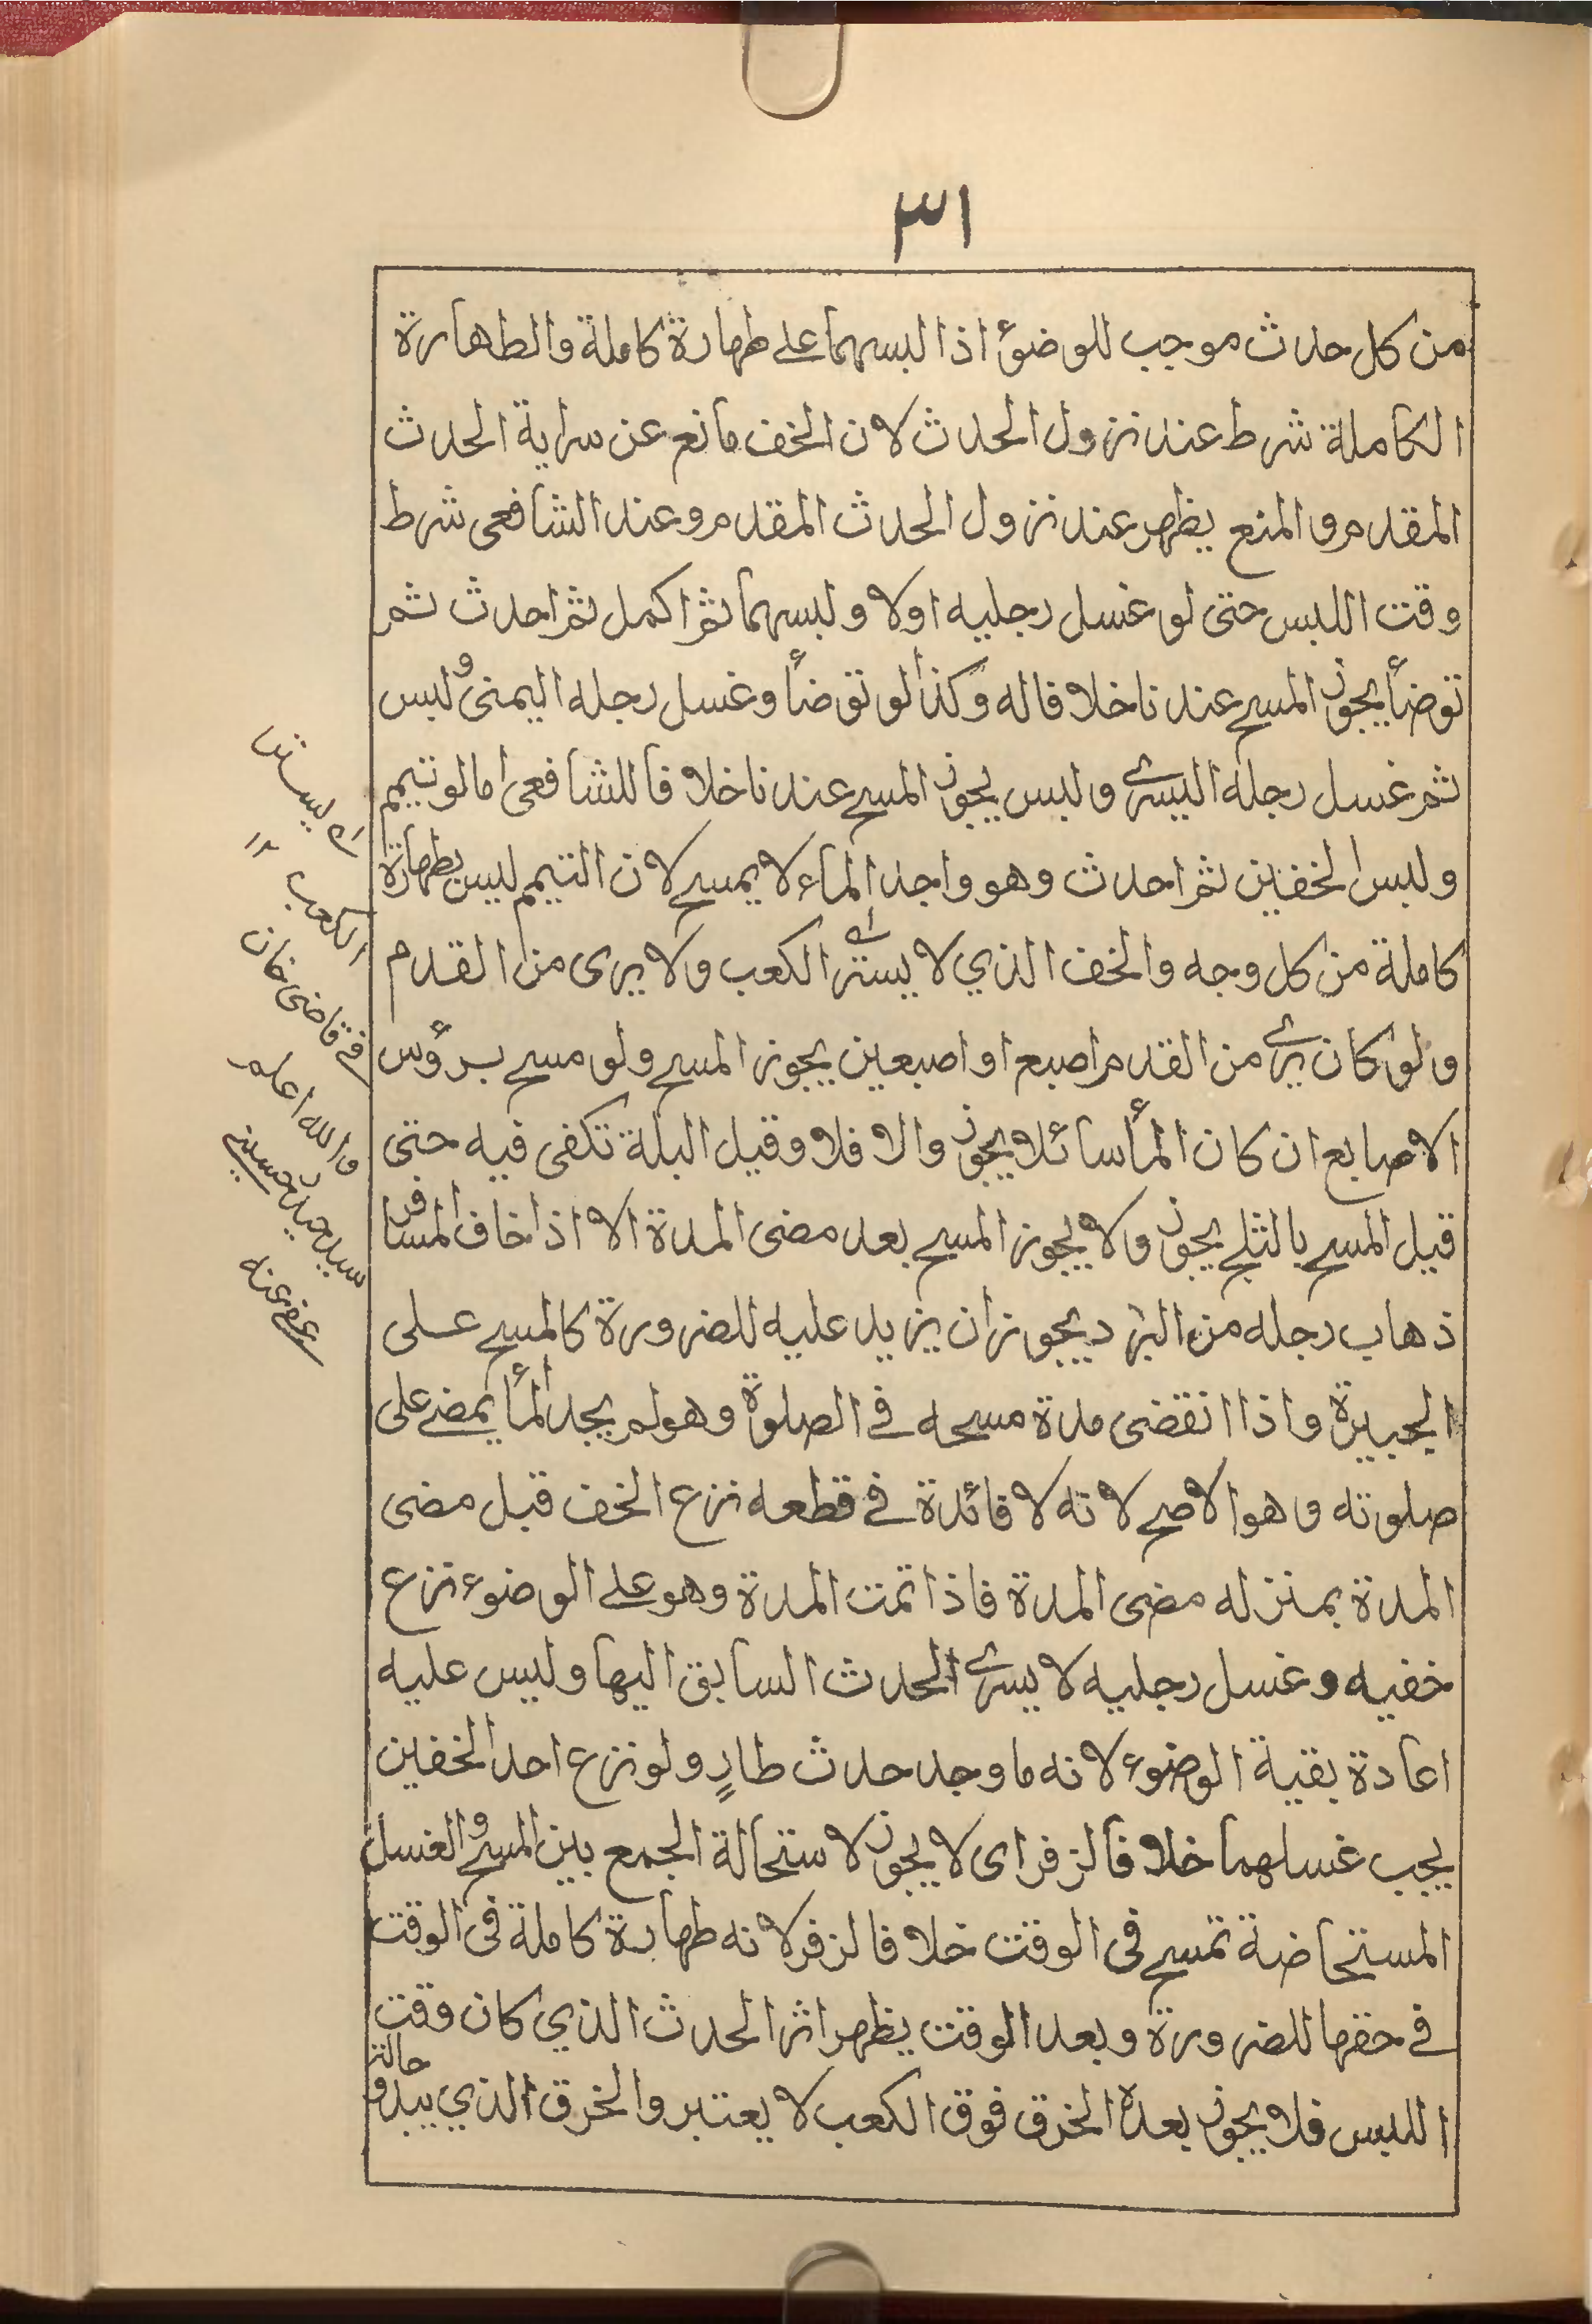 ٣١
من كل حدث موجب للوضوٴ اذا لبسهما على طهارة كاملة والطهارة
الكاملة شرط عند نزول الحدث لان الخف مانع عن سراية الحدث
المقدم والمنع يظهر عند نزول الحدث المقدم وعند الشافعى شرط
وقت اللبس حتى لو غسل رجليه اولا ولبسهما ثم اكمل ثم احدث ثم
توضأ يجوز المسح عندنا خلافا له وكذا لو توضأ وغسل رجله اليمنى ولبس
ثم غسل رجله اليسرى ولبس يجوز المسح عندنا خلافا للشافعى اما لو تيمم
ولبس الخفين ثم احدث وهو واجد الماء لا يمسح لان التيمم ليس بطهارة
كاملة من كل وجه والخف الذي لا يستر الكعب ولا يرى من القدم
ولو كان يرى من القدم اصبع او اصبعين يجوز المسح ولو مسح برؤس
الاصابع ان كان المأ سائلا يجوز والا فلا وقيل البلة تكفى فيه حتى
قيل المسح بالثلج يجوز ولا يجوز المسح بعد مضى المدة الا اذا خاف المسافر
ذهاب رجله من البرد يجوز ان يزيد عليه للضرورة كالمسح على
الجبيرة واذا انقضى مدة مسحه فى الصلوة وهو لم يجد المأ يمضى على
صلوته وهو الاصح لانه لا فائدة فى قطعه نزع الخف قبل مضى
المدة بمنزله مضى المدة فاذا تمت المدة وهو على الوضوء نزع
خفيه وغسل رجليه لا يسرى الحدث السابق اليها وليس عليه
اعادة بقية الوضوء لانه ما وجد حدث طارٍ ولو نزع احد الخفين
يجب غسلهما خلافا لزفر اى لا يجوز لاستحالة الجمع بين المسح والغسل
المستحاضة تمسح فى الوقت خلافا لزفر لانه طهارة كاملة فى الوقت
فى حقها للضرورة وبعد الوقت يظهر اثر الحدث الذي كان وقت
اللبس فلا يجوز بعده الخرق فوق الكعب لا يعتبر والخرق الذي يبدو
حالة
يستر
الكعب ١٢
قاضى خان
والله اعلم
سيد حسينى
عفى عنه